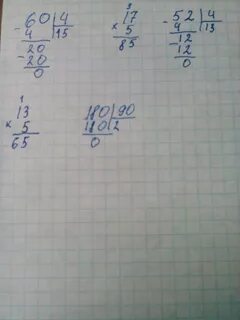 60 | 4
- 4 | 15
20
- 20
0
3
17
× 5
85
- 52 | 4
4 | 13
12
- 12
0
1
13
× 5
65
180 | 90
180 | 2
0